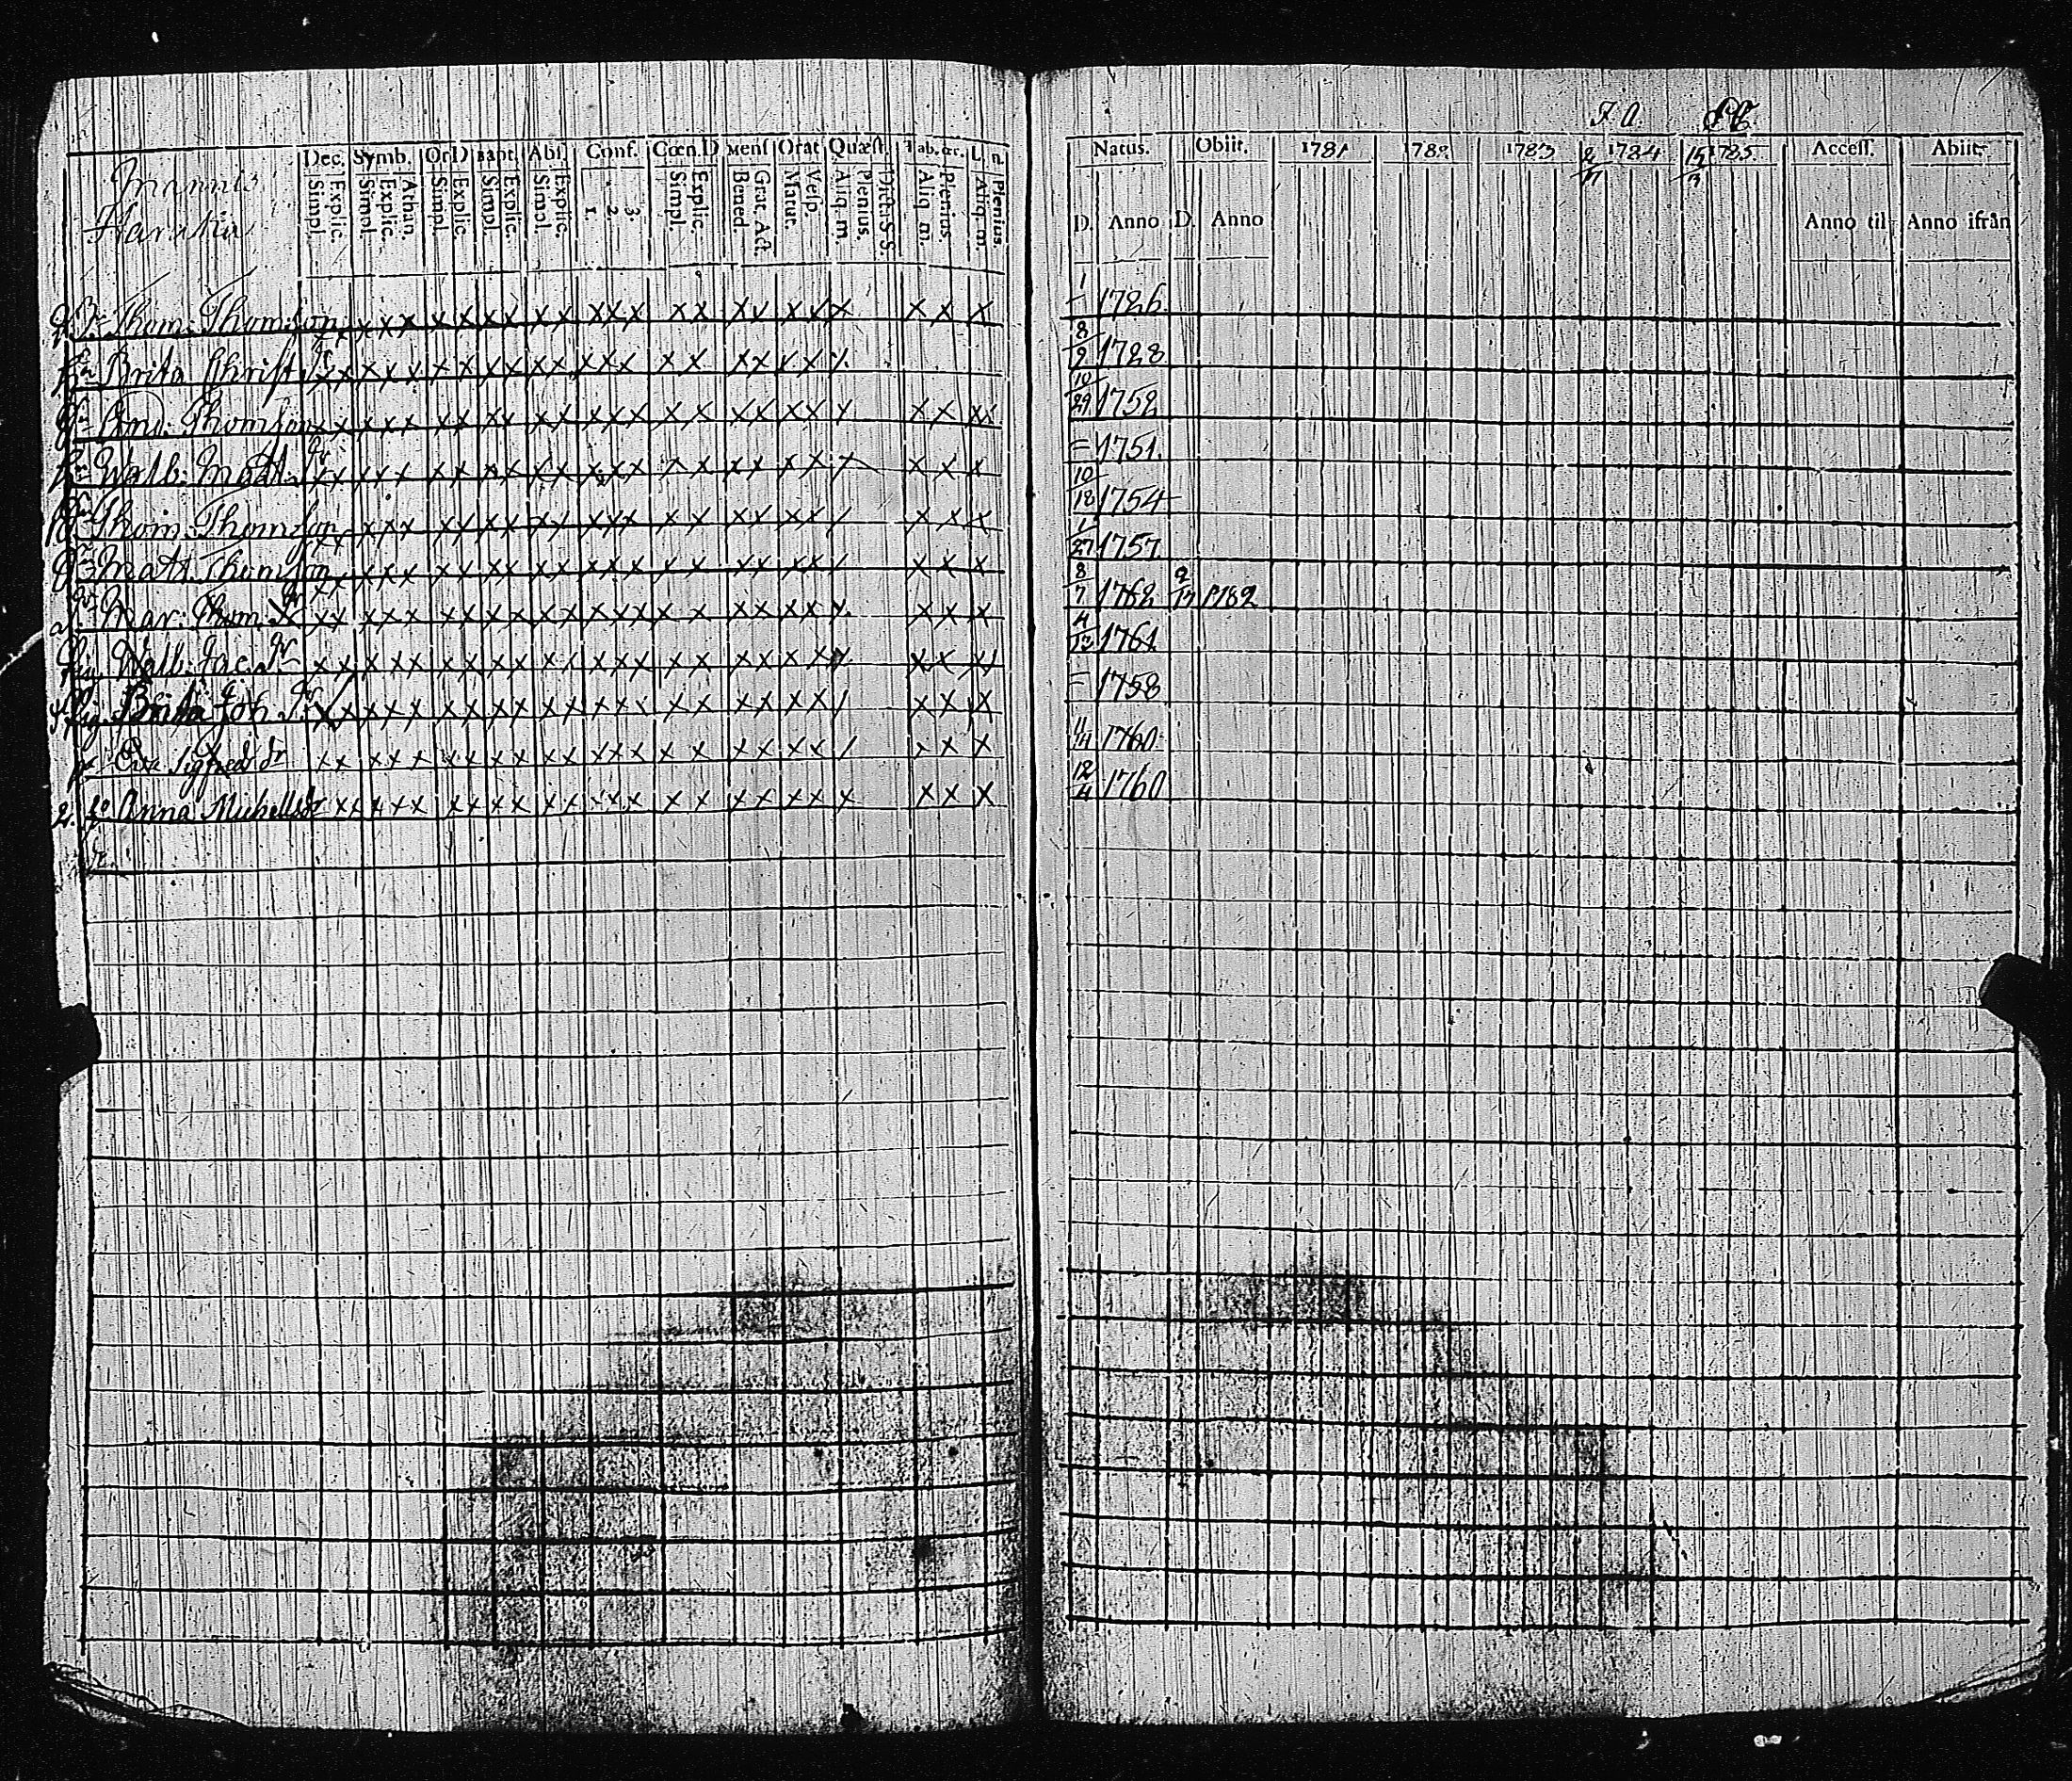 Dec. Symb. Or D Bapt. Abs. Conf. Cœn. D Mens Orat Quæst. Tab. œc. L. n.
Simpl. Explic. Simpl. Explic. Athan. Simpl. Explic. Simpl. Explic. Simpl. Explic. 1. 2. 3. Simpl. Explic. Bened. Grat. Act. Matut. Vesp. Aliq. m. Plenius. Dictis S. S. Aliq. m. Plenius. Aliq. m. Plenius.
Thom. Thomson x x x x x x x x x x x x x x x x x x x x x x x x
Brita Christ. dr x x x x x x x x x x x x x x x x x x x x x
And. Thomson x x x x x x x x x x x x x x x x x x x x x x x x x
Walb. Matt. dr x x x x x x x x x x x x x x x x x x x x x x x x
Thom. Thomson x x x x x x x x x x x x x x x x x x x x / x x x
Matt. Thomson x x x x x x x x x x x x x x x x x x x x / x x x
Mar. Thom. dr x x x x x x x x x x x x x x x x x x x x x x x x
Walb. Jac. dr x x x x x x x x x x x x x x x x x x x x x x x x
Brita Joh. dr x x x x x x x x x x x x x x x x x x x x / x x x
Eva Sigfred dr x x x x x x x x x x x x x x x x x x x x / x x x
Anna Michellsdr x x x x x x x x x x x x x x x x x x x x x x x
Natus. Obiit. 1781 1782 1783 1784 1785. Access. Abiit.
D. Anno D. Anno Anno til Anno ifrån
1726
8/9 1728
10/29 1752
= 1751
10/18 1754
1757
8/7 1762 1782
4/12 1761
= 1758
1760
12/4 1760